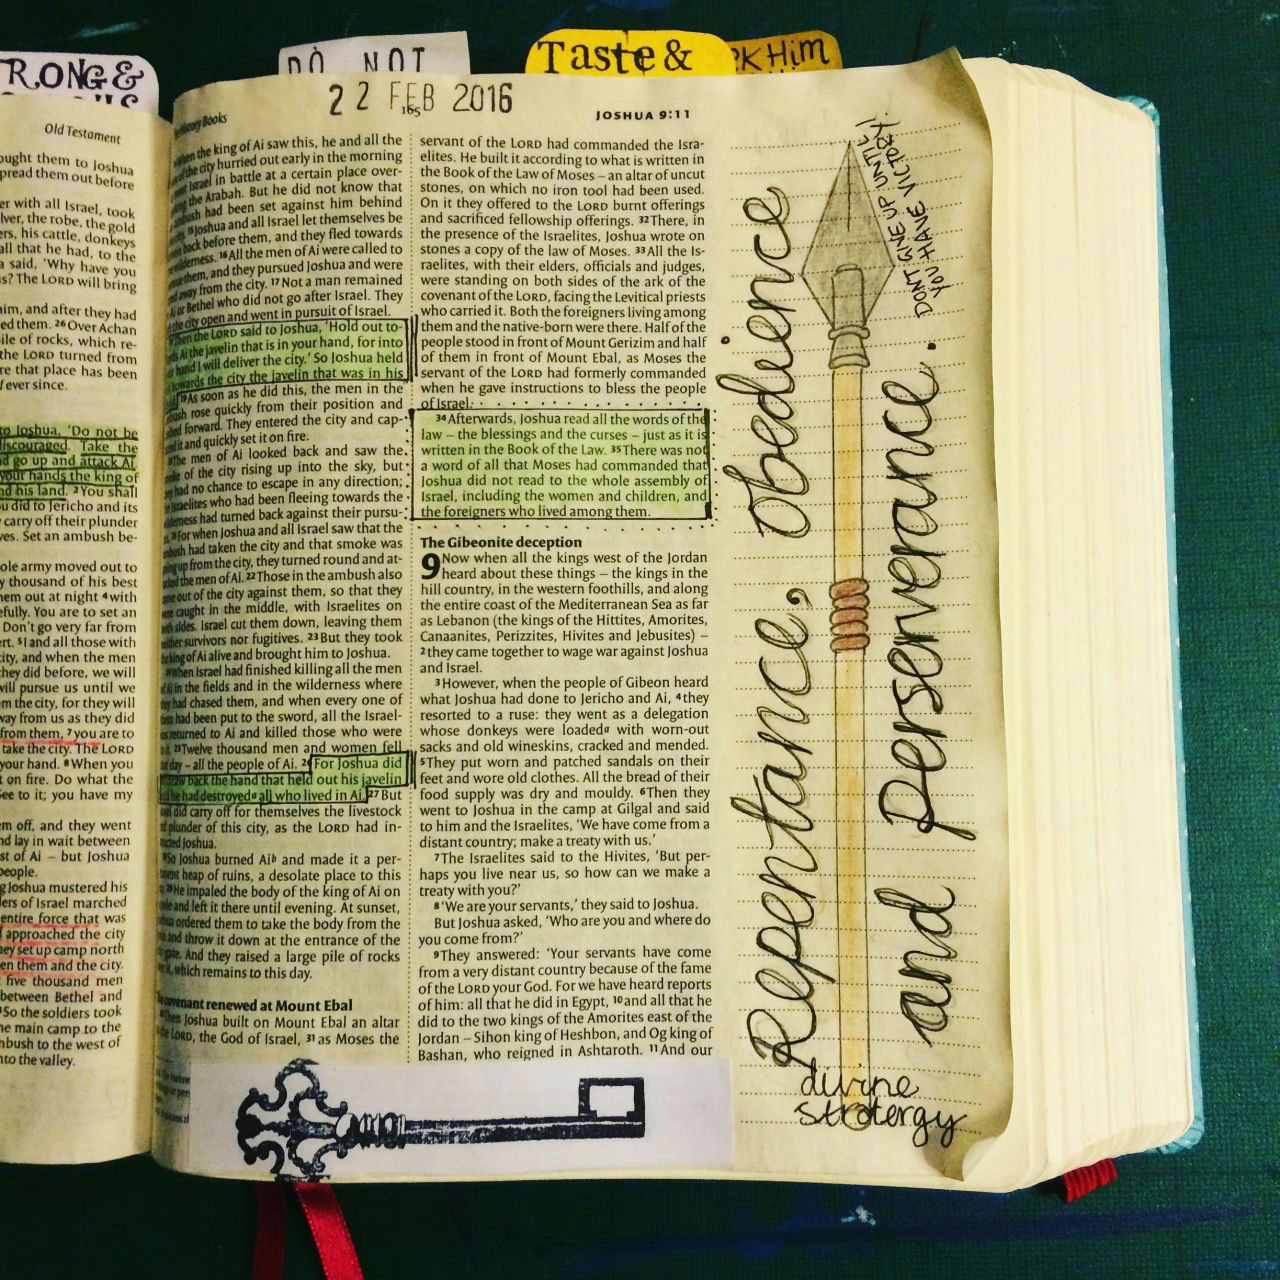 RONG &
DO NOT
Taste &
EK Him
22 FEB 2016
165
JOSHUA 9:11
History Books
Old Testament
ought them to Joshua
pread them out before
er with all Israel, took
lver, the robe, the gold
ers, his cattle, donkeys
all that he had, to the
a said, ‘Why have you
s? The LORD will bring
him, and after they had
ed them. 26 Over Achan
ile of rocks, which re-
the LORD turned from
re that place has been
ever since.
to Joshua, ‘Do not be
discouraged. Take the
nd go up and attack Ai.
your hands the king of
nd his land. 2 You shall
u did to Jericho and its
carry off their plunder
ves. Set an ambush be-
ole army moved out to
y thousand of his best
hem out at night 4 with
efully. You are to set an
Don’t go very far from
ert. 5 I and all those with
city, and when the men
hey did before, we will
will pursue us until we
m the city, for they will
way from us as they did
from them, 7 you are to
take the city. The LORD
your hand. 8 When you
t on fire. Do what the
See to it; you have my
em off, and they went
nd lay in wait between
st of Ai – but Joshua
people.
g Joshua mustered his
ders of Israel marched
entire force that was
approached the city
hey set up camp north
en them and the city.
five thousand men
between Bethel and
So the soldiers took
he main camp to the
mbush to the west of
nto the valley.
When the king of Ai saw this, he and all the
of the city hurried out early in the morning
Israel in battle at a certain place over-
the Arabah. But he did not know that
bush had been set against him behind
15 Joshua and all Israel let themselves be
back before them, and they fled towards
wilderness. 16 All the men of Ai were called to
them, and they pursued Joshua and were
away from the city. 17 Not a man remained
Ai or Bethel who did not go after Israel. They
the city open and went in pursuit of Israel.
Then the LORD said to Joshua, ‘Hold out to-
ds Ai the javelin that is in your hand, for into
hand I will deliver the city.’ So Joshua held
towards the city the javelin that was in his
19 As soon as he did this, the men in the
bush rose quickly from their position and
forward. They entered the city and cap-
it and quickly set it on fire.
The men of Ai looked back and saw the
of the city rising up into the sky, but
had no chance to escape in any direction;
Israelites who had been fleeing towards the
had turned back against their pursu-
For when Joshua and all Israel saw that the
bush had taken the city and that smoke was
up from the city, they turned round and at-
the men of Ai. 22 Those in the ambush also
out of the city against them, so that they
caught in the middle, with Israelites on
sides. Israel cut them down, leaving them
survivors nor fugitives. 23 But they took
king of Ai alive and brought him to Joshua.
When Israel had finished killing all the men
Ai in the fields and in the wilderness where
had chased them, and when every one of
had been put to the sword, all the Israel-
returned to Ai and killed those who were
25 Twelve thousand men and women fell
day – all the people of Ai. 26 For Joshua did
back the hand that held out his javelin
he had destroyed a all who lived in Ai. 27 But
did carry off for themselves the livestock
plunder of this city, as the LORD had in-
Joshua.
So Joshua burned Ai b and made it a per-
heap of ruins, a desolate place to this
He impaled the body of the king of Ai on
and left it there until evening. At sunset,
ordered them to take the body from the
and throw it down at the entrance of the
gate. And they raised a large pile of rocks
it, which remains to this day.
covenant renewed at Mount Ebal
Then Joshua built on Mount Ebal an altar
LORD, the God of Israel, 31 as Moses the
servant of the LORD had commanded the Isra-
elites. He built it according to what is written in
the Book of the Law of Moses – an altar of uncut
stones, on which no iron tool had been used.
On it they offered to the LORD burnt offerings
and sacrificed fellowship offerings. 32 There, in
the presence of the Israelites, Joshua wrote on
stones a copy of the law of Moses. 33 All the Is-
raelites, with their elders, officials and judges,
were standing on both sides of the ark of the
covenant of the LORD, facing the Levitical priests
who carried it. Both the foreigners living among
them and the native-born were there. Half of the
people stood in front of Mount Gerizim and half
of them in front of Mount Ebal, as Moses the
servant of the LORD had formerly commanded
when he gave instructions to bless the people
of Israel.
34 Afterwards, Joshua read all the words of the
law – the blessings and the curses – just as it is
written in the Book of the Law. 35 There was not
a word of all that Moses had commanded that
Joshua did not read to the whole assembly of
Israel, including the women and children, and
the foreigners who lived among them.
The Gibeonite deception
9 Now when all the kings west of the Jordan
heard about these things – the kings in the
hill country, in the western foothills, and along
the entire coast of the Mediterranean Sea as far
as Lebanon (the kings of the Hittites, Amorites,
Canaanites, Perizzites, Hivites and Jebusites) –
2 they came together to wage war against Joshua
and Israel.
3 However, when the people of Gibeon heard
what Joshua had done to Jericho and Ai, 4 they
resorted to a ruse: they went as a delegation
whose donkeys were loaded a with worn-out
sacks and old wineskins, cracked and mended.
5 They put worn and patched sandals on their
feet and wore old clothes. All the bread of their
food supply was dry and mouldy. 6 Then they
went to Joshua in the camp at Gilgal and said
to him and the Israelites, ‘We have come from a
distant country; make a treaty with us.’
7 The Israelites said to the Hivites, ‘But per-
haps you live near us, so how can we make a
treaty with you?’
8 ‘We are your servants,’ they said to Joshua.
But Joshua asked, ‘Who are you and where do
you come from?’
9 They answered: ‘Your servants have come
from a very distant country because of the fame
of the LORD your God. For we have heard reports
of him: all that he did in Egypt, 10 and all that he
did to the two kings of the Amorites east of the
Jordan – Sihon king of Heshbon, and Og king of
Bashan, who reigned in Ashtaroth. 11 And our
Repentance, obedience
and perserverance.
DON'T GIVE UP UNTIL
YOU HAVE VICTORY!
divine
stratergy